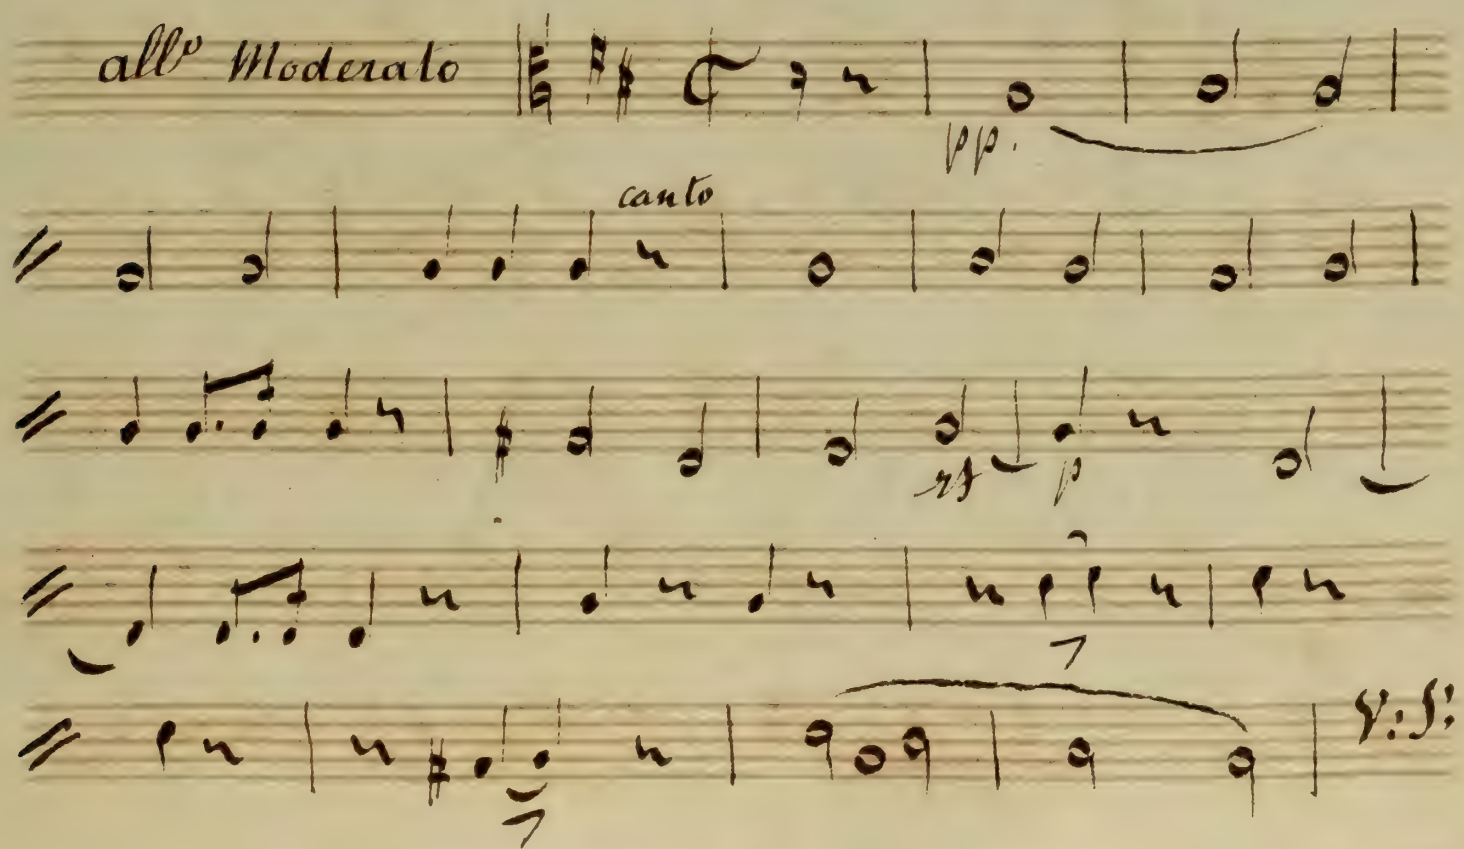 allo Moderato
pp.
canto
rf p
V: S: